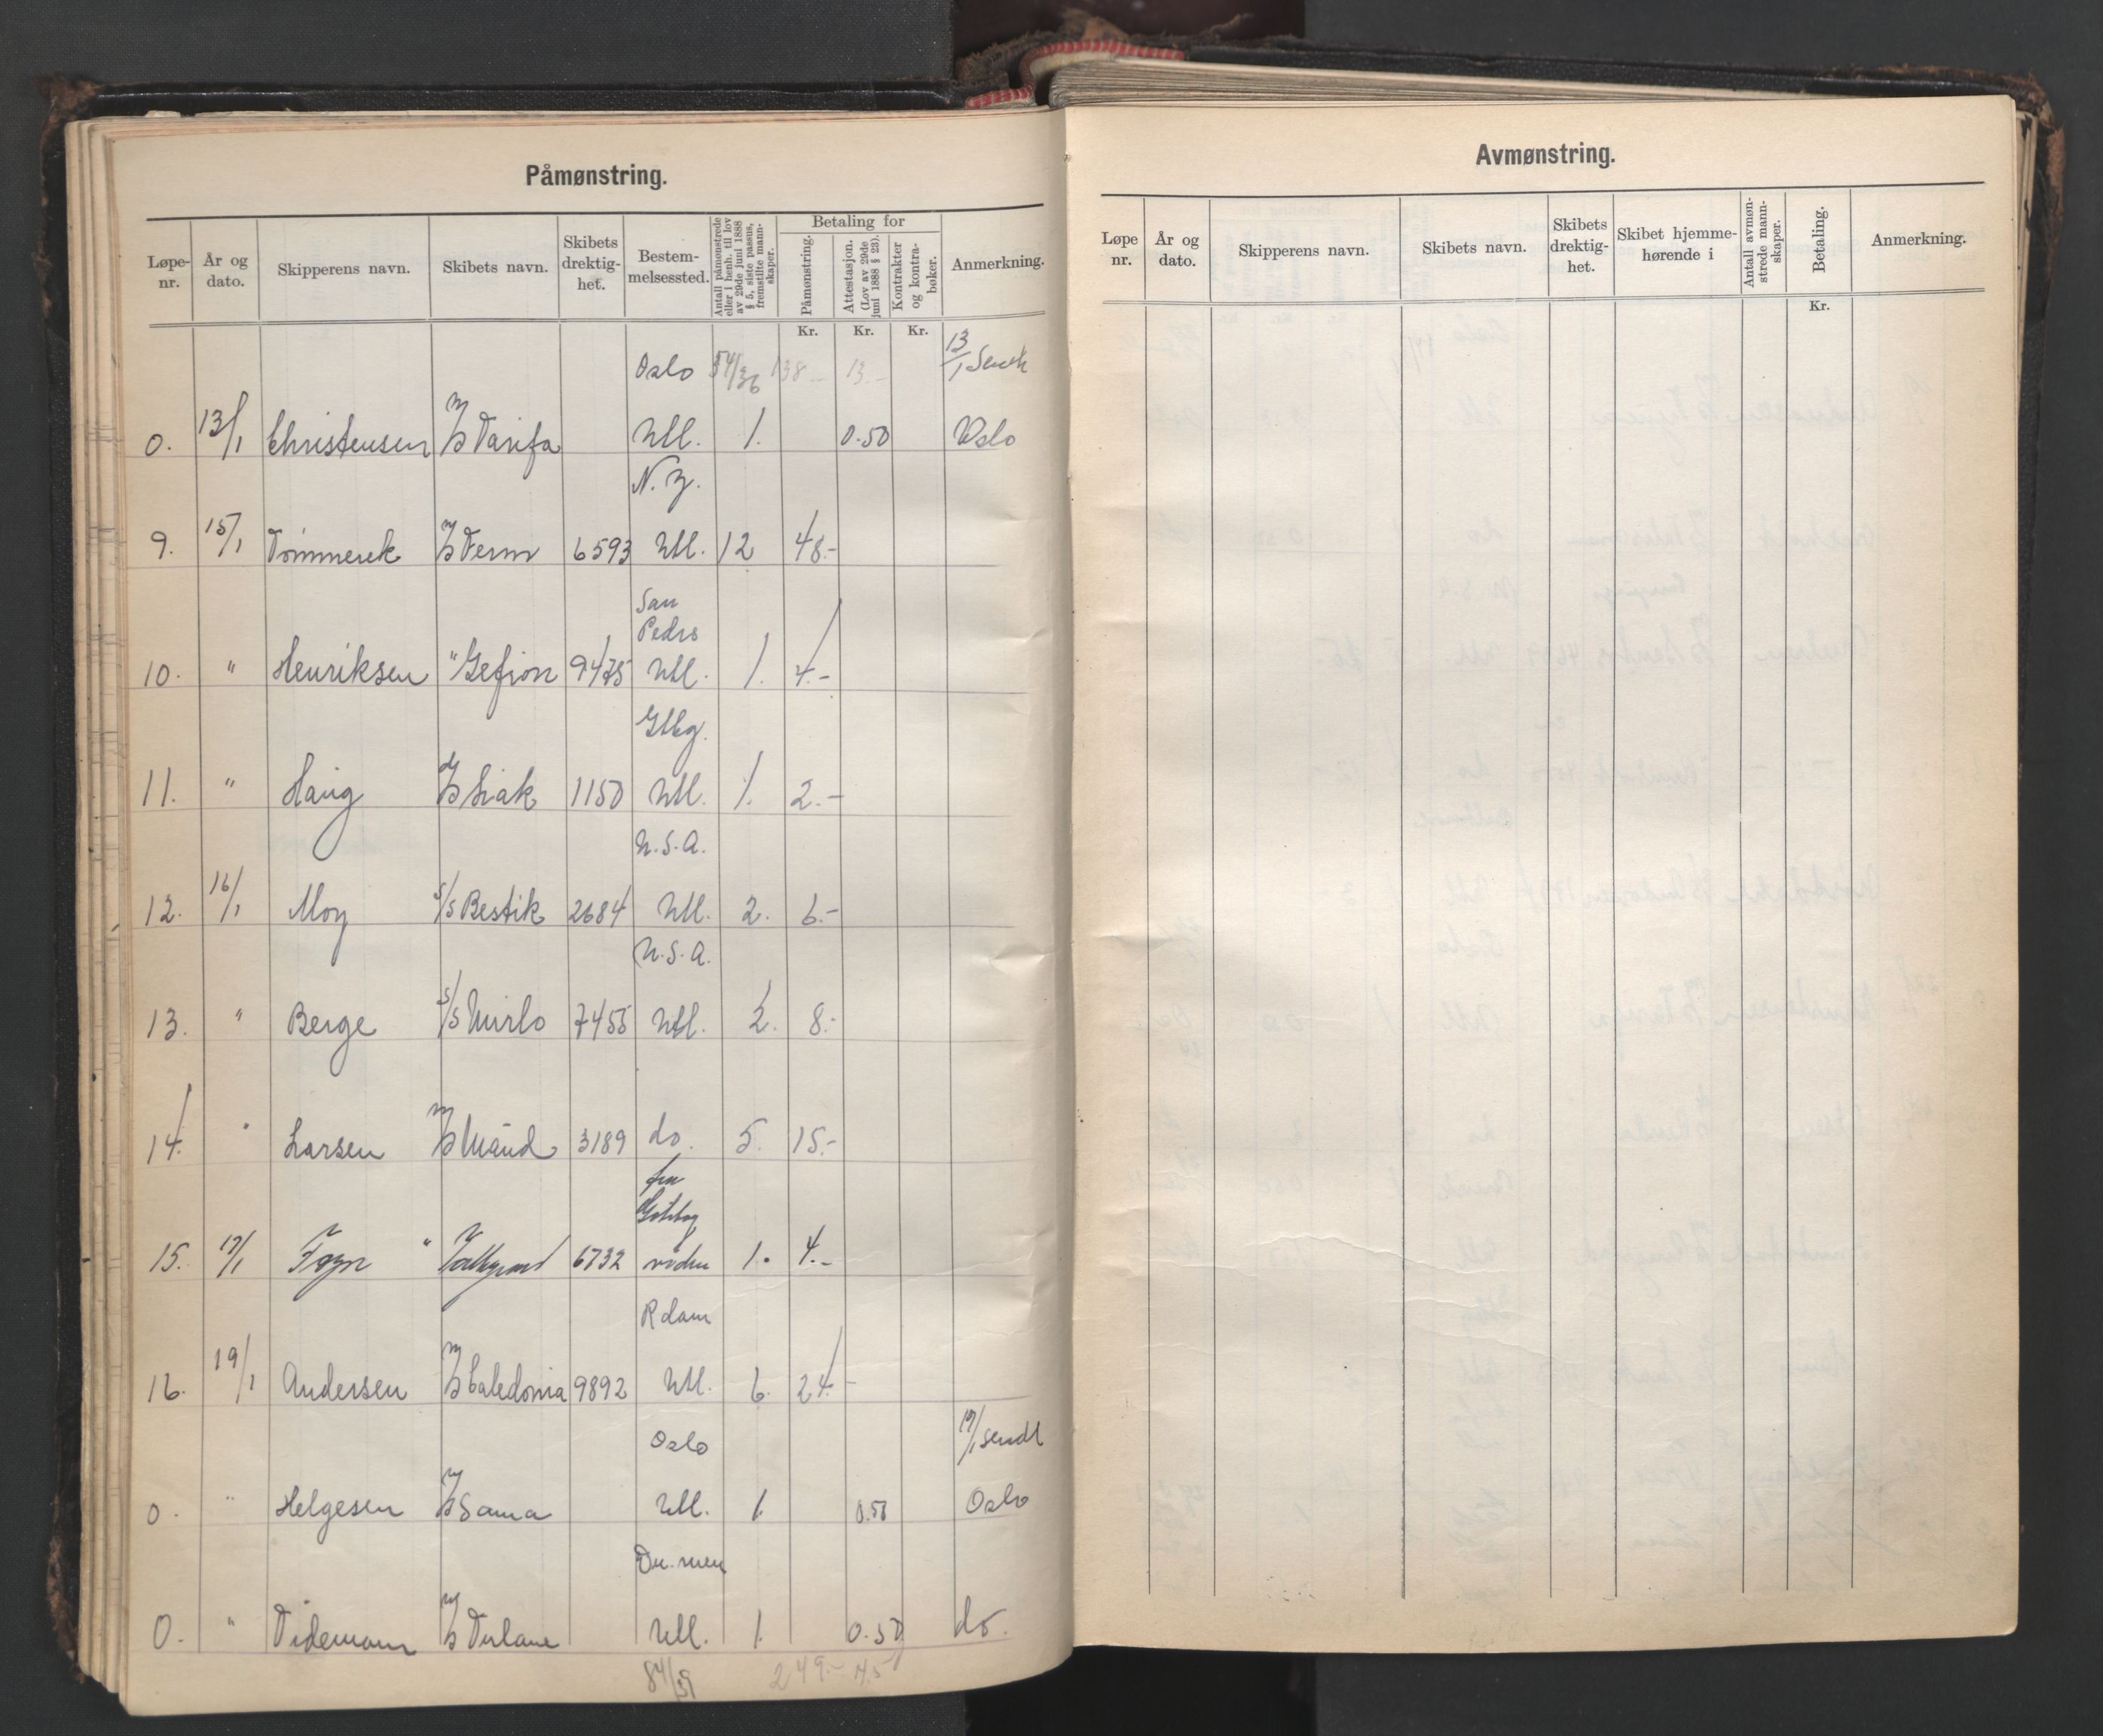 Påmønstring.
Løpe-nr. | År og dato. | Skipperens navn. | Skibets navn. | Skibets drektig-het. | Bestem-melsessted. | Antall påmønstrede eller i henh. til lov av 29de juni 1888 § 5, siste passus, fremstilte mann-skaper. | Betaling for | Påmønstring. | Attestasjon. (Lov av 29de juni 1888 § 23). | Kontrakter og kontra-bøker. | Anmerkning.
Kr. | Kr. | Kr.
Oslo 54/36 138 - 13 - 13/1 Sendt
0. 13/1 Christensen M/S Tarifa Utl. 1. 0.50 Oslo
N. Z.
9. 15/1 Tømmerek M/S Fernn 6593 Utl. 12 48.-
San
Pedro
10. " Henriksen " Gefion 9475 Utl. 1. 4.-
Gtbg.
11. " Haug D/S Siak 1150 Utl. 1. 2.-
U.S.A.
12. 16/1 Moy S/S Bestik 2684 Utl. 2. 6.-
U.S.A.
13. " Berge S/S Mirlo 7455 Utl. 2. 8.-
14. " Larsen M/S Maud 3189 do. 5. 15.-
fra
15. 17/1 " 6732 1. 4.-
Rdam
16. 19/1 Andersen M/S Caledonia 9892 Utl. 6. 24.-
Oslo 19/1 sendt
0. " Helgesen M/S Sama Utl. 1. 0.50 Oslo
0. " Tidemann M/S Tulane Utl. 1. 0.50 do.
249.-
Avmønstring.
Løpe nr. | År og dato. | Skipperens navn. | Skibets navn. | Skibets drektig-het. | Skibet hjemme-hørende i | Antall avmøn-strede mann-skaper. | Betaling. | Anmerkning.
Kr.